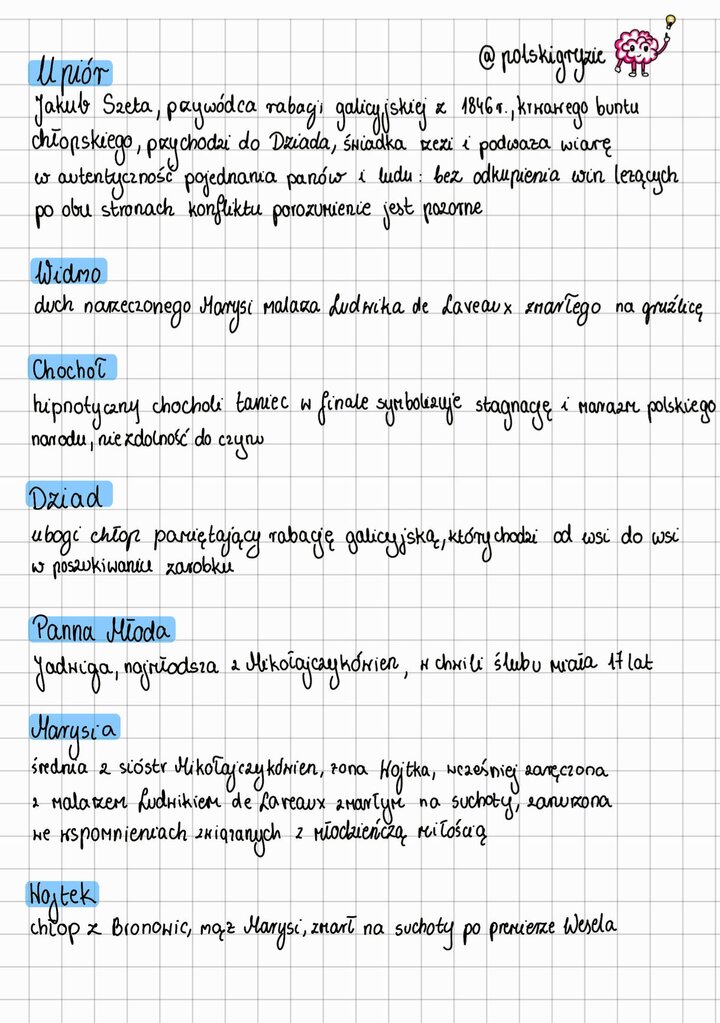 @polskigryzie
Upiór
Jakub Szeta, przywódca rabagi galicyjskiej z 1846r., krwawego buntu
chłopskiego, przychodzi do Dziada, świadka rzezi i podważa wiarę
w autentyczność pojednania panów i ludu: bez odkupienia win leżących
po obu stronach konfliktu porozumienie jest pozorne
Widmo
duch narzeczonego Marysi malarza Ludwika de Laveaux zmarłego na gruźlicę
Chochoł
hipnotyczny chocholi taniec w finale symbolizuje stagnację i marazm polskiego
narodu, niezdolność do czynu
Dziad
ubogi chłop pamiętający rabację galicyjską, który chodzi od wsi do wsi
w poszukiwaniu zarobku
Panna Młoda
Jadwiga, najmłodsza z Mikołajczykównien, w chwili ślubu miała 17 lat
Marysia
średnia z sióstr Mikołajczykównien, żona Wojtka, wcześniej zaręczona
z malarzem Ludwikiem de Laveaux zmarłym na suchoty, zanurzona
we wspomnieniach związanych z młodzieńczą miłością
Wojtek
chłop z Bronowic, mąż Marysi, zmarł na suchoty po premierze Wesela